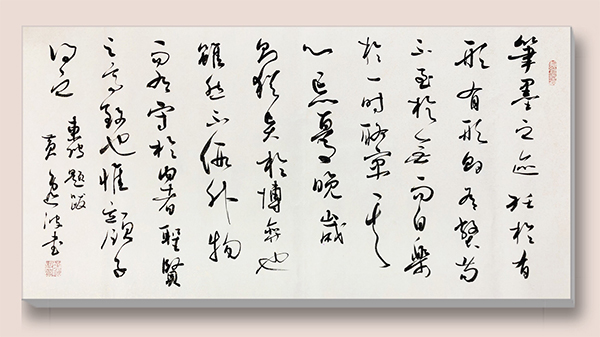 筆墨之迹托於有
形有形則有弊苟
不至於无而自樂
於一時聊寓其
心忘憂晚歲
則猶賢於博弈也
雖然不假外物
而有守於內者聖賢
之高致也惟顏子
得之
東坡題跋
黃
書